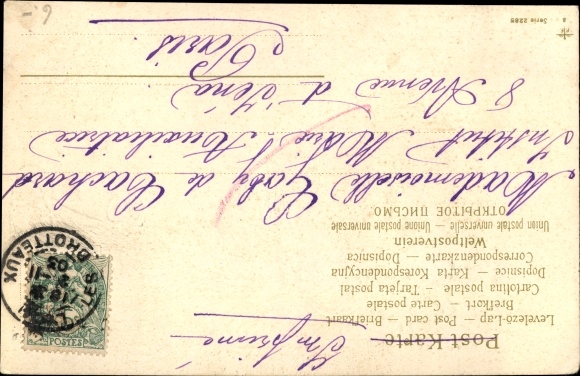 Imprimé
Post-Karte
Levelező-Lap — Post card — Briefkaart
Brefkort — Carte postale
Cartolina postale — Tarjeta postal
Dopisnice — Karta Korespondencyjna
Correspondenzkarte — Dopisnica
Weltpostverein
Union postale universelle — Unione postale universale
ОТКРЫТОЕ ПИСЬМО
LYON
LES BROTTEAUX
POSTES
Mademoiselle Gaby de Cachard
Institut Marie Auxiliatrice
8 Avenue d'Iéna
Paris
Serie 2285